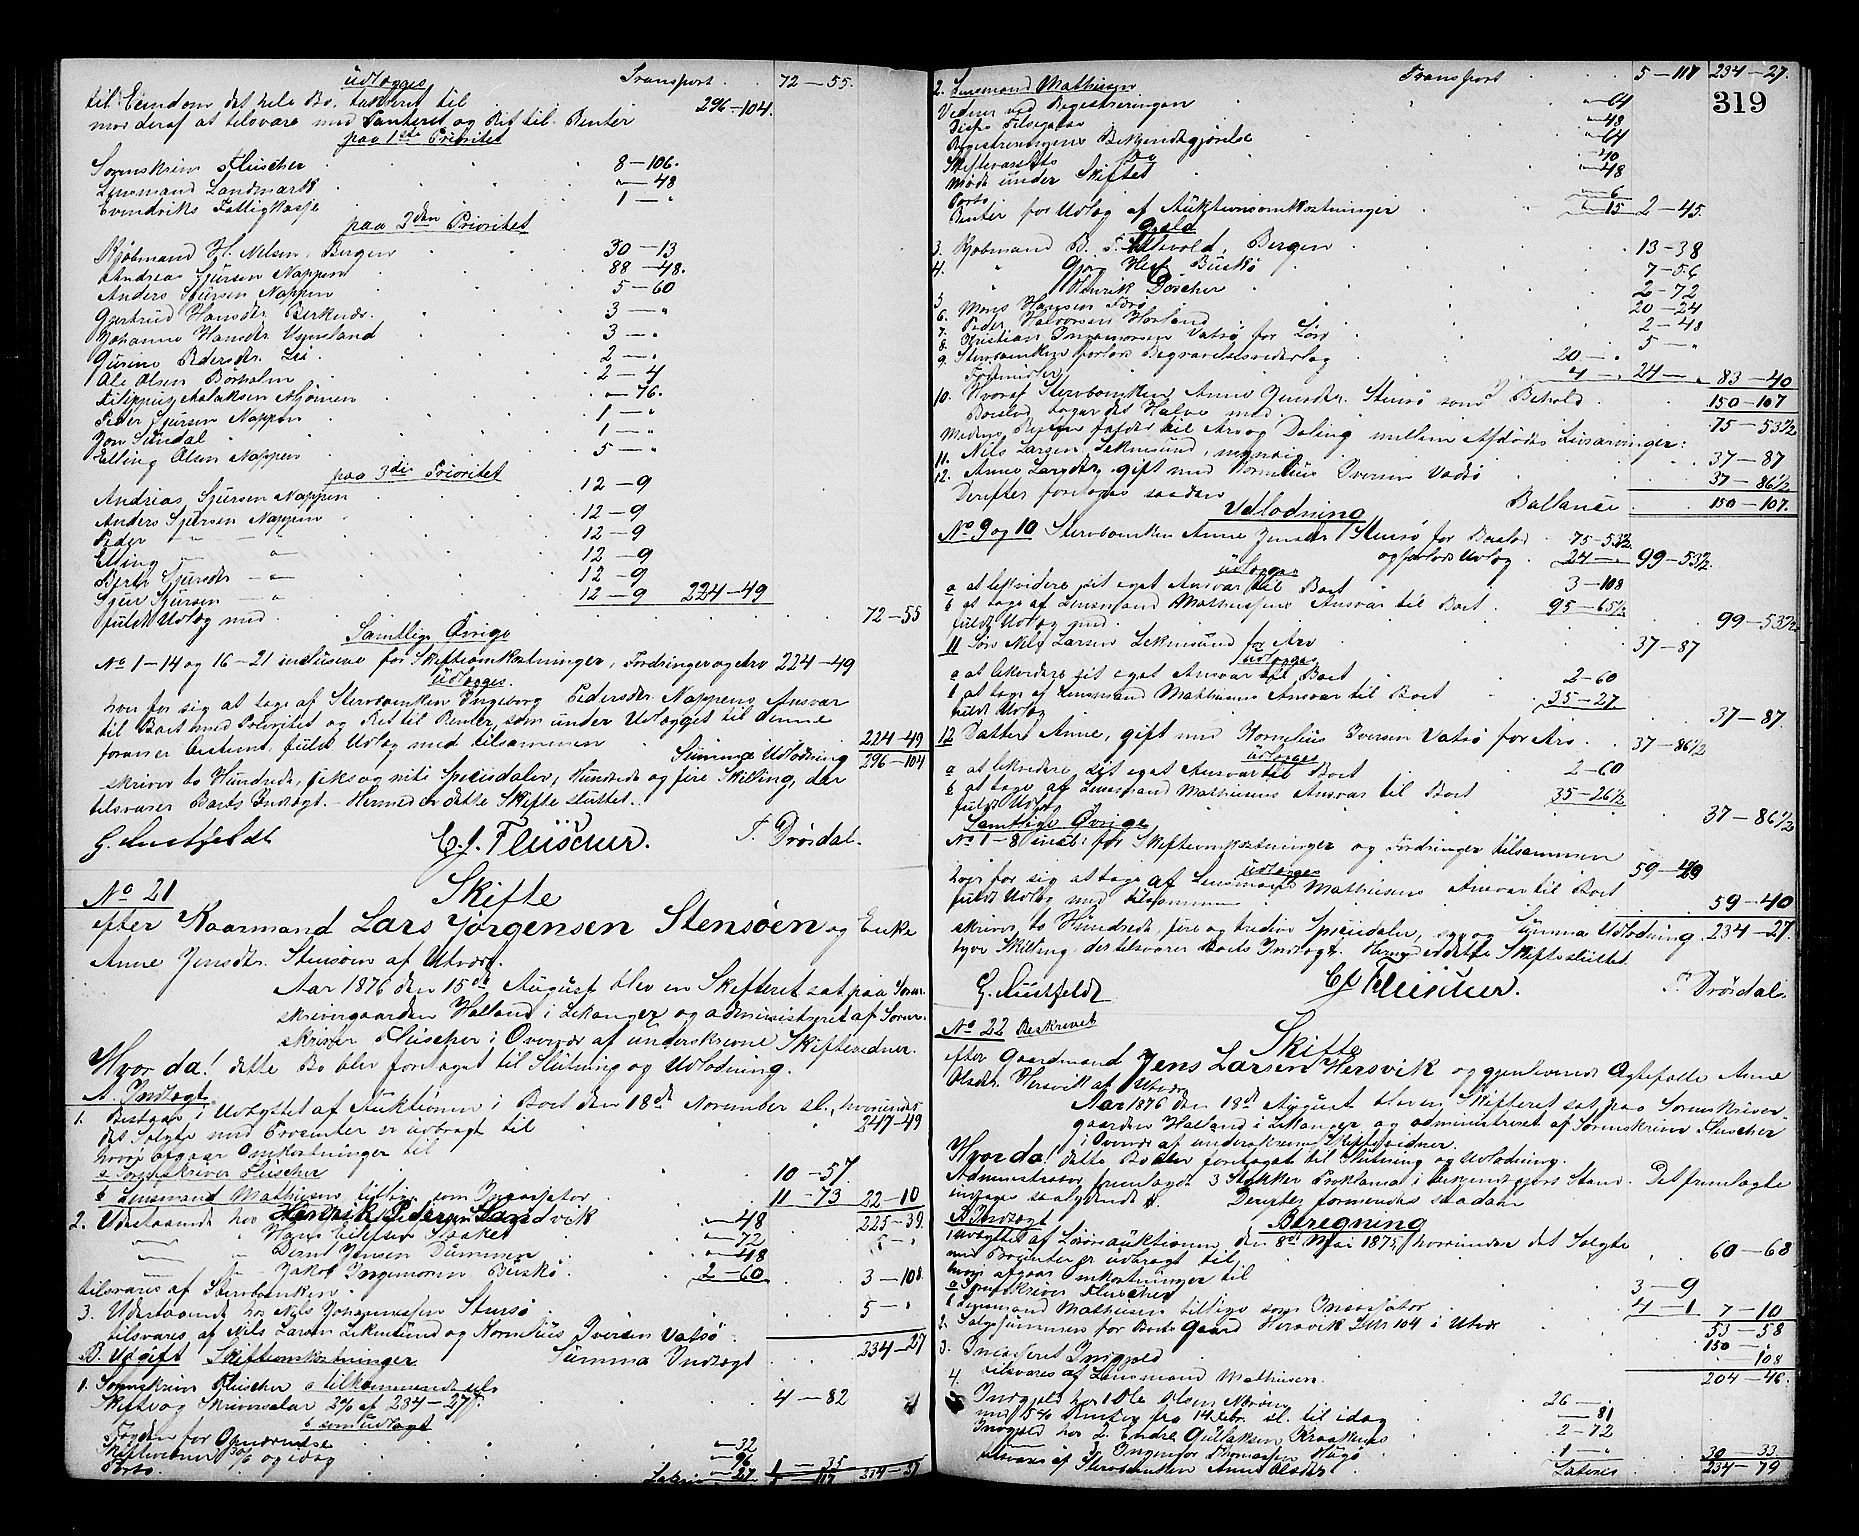 udlægges Transport 72 — 55.
til Eiendom det hele Bo, taxeret til 296 — 104.
mod deraf at tilsvare med Panteret og Ret til Renter
paa 1ste Prioritet
Sorenskriver Fleischer 8 — 106.
Lensmand Landmark " — 48
Evindviks Fattigkasse 1 — "
paa 2den Prioritet
Kjøbmand H. Nilsen, Bergen 30 — 13
Andreas Sjursen Nappen 88 — 48.
Anders Sjursen Nappen 5 — 60
Gjertrud Hansdtr 3 — "
Johanne Hansdtr 3 — "
Gurine Pedersdtr. 2 — "
Ole Olsen Børholm 2 — 4
" — 76.
Peder Sjursen Nappen 1 — "
Jon Sundal 1 — "
Elling Olsen Nappen 5 — "
paa 3die Prioritet
Andreas Sjursen Nappen 12 — 9
Anders Sjursen Nappen 12 — 9
Peder — " — " 12 — 9
Elling — " 12 — 9
Berthe Sjursdtr — " 12 — 9
Sjur Sjursen — " 12 — 9 224 — 49
fuldt Udlæg med 72 — 55
Samtlige Øvrige
No 1 — 14 og 16 — 21 inclusive for Skifteomkostninger, Fordringer og Arv 224 — 49
udlægges.
hver for sig at tage af Stervboenken Ingeborg Pedersdtr Nappens Ansvar
til Boet med Prioritet og Ret til Renter, som under Udlægget til denne
foran er bestemt, fuldt Udlæg med tilsammen 224 — 49
Summa Udlodning 296 — 104
skriver to Hundrede, seks og niti Speciedaler, Hundrede og fire Skilling, der
tilsvarer Boets Indtægt. Hermed er dette Skifte sluttet.
C. J. Fleischer. T. Drøsdal.
No 21 Skifte
efter Kaarmand Lars Jørgensen Stensøen og Enke
Anne Jensdtr. Stensøen af Utvær.
Aar 1876 den 15de August blev en Skifteret sat paa Soren-
skrivergaarden Halland i Lekanger og administreret af Soren-
skriver Fleischer i Overvær af underskrevne Skiftevidner.
Hvorda! dette Bo blev foretaget til Slutning og Udlodning.
A. Indtægt
1. Bestaar i Udbyttet af Auktionen i Boet den 18de November sl., hvorunder
det Solgte med Procenter er udbragt til 247 — 49
hvori afgaar Omkostninger til
a Sorenskriver Fleischer 10 — 57.
b Lensmand Mathiesen tillige som Incassator 11 — 73 22 — 10
225 — 39.
2. Udestaaende hos Henrik Pedersen Sandvik " — 48
" — 72
Bernt Jensen Dummen " — 48
Jakob Ingemorsen Buskø 2 — 60
tilsvares af Stervboenken. 3 — 108
3. Udestaaende hos Nils Johannessen Stensø 5 — "
tilsvares af Nils Larsen Lekmsund og Kornelius Iversen Vatsø
Summa Indtægt 234 — 27
B. Udgift Skifteomkostninger
1. Sorenskriver Fleischer a tilkommende selv
Skifte og Skriversalær 2% af 234 — 27 4 — 82
b som udlagt
Fogden for Opnævnelse " — 32
Skiftevidner og idag " — 96
Porto. " — 27 1 — 35
Lateris
319
2. Lensmand Mathiesen Transport 5 — 117 234 — 27.
Vidner ved Registreringen " — 64
" — 48
Registreringens Bekjendtgjørelse " — 64
Skiftevarsels Do " — 40
Møde under Skiftet " — 48
Porto " — 6
Renter for Udlæg af Auktionsomkostninger " — 15 2 — 45.
Gjæld
3. Kjøbmand Bergen 13 — 38
4. " Gjøn Buskø 7 — 56
" Henrik Døscher 2 — 72
5. Mons Hansen Færø 20 — 24
6. Peder Halvorsen Horland 2 — 48
7. Kristian Ingemorsen Vatsø for Løn 5 — "
9. Stervboenken forlods Begravelsesvederlag 20 — "
4 — " 24 — " 83 — 40
150 — 107
10. Hvoraf Stervboenken Anne Jensdtr. Stensø som Behold.
Boeslod tager det Halve med 75 — 53½
Medens Resten falder til Arv og Deling mellem Afdødes Livsarvinger:
11. Nils Larsen Lekmsund, myndig 37 — 87
12. Anne Larsdtr, gift med Kornelius Iversen Vatsø 37 — 86½
Ballance 150 — 107.
Derefter foretages saadan
Udlodning
No 9 og 10 Stervboenken Anne Jensdtr Stensø for Boeslod 75 — 53½
og forlods Udlæg 24 — " 99 — 53½.
udlægges
a at likvidere sit eget Ansvar til Boet 3 — 108
b at tage af Lensmand Mathiesens Ansvar til Boet 95 — 65½
fuldt Udlæg med 99 — 53½
11 Søn Nils Larsen Lekmsund for Arv 37 — 87
udlægges
a at likvidere sit eget Ansvar til Boet 2 — 60
b at tage af Lensmand Mathiesens Ansvar til Boet 35 — 27.
fuldt Udlæg 37 — 87.
12 Datter Anne, gift med Kornelius Iversen Vatsø for Arv 37 — 86½
udlægges
a at likvidere sit eget Ansvar til Boet 2 — 60
b at tage af Lensmand Mathiesens Ansvar til Boet 35 — 26½
fuldt Udlæg 37 — 86½
Samtlige Øvrige
No 1 — 8 incl: for Skifteomkostninger og Fordringer tilsammen 59 — 40
udlægges
hver for sig at tage af Lensmand Mathiesens Ansvar til Boet
fuldt Udlæg med tilsammen 59 — 40
Summa Udlodning 234 — 27.
skriver to Hundrede, fire og tredive Speciedaler, syv og
tyve Skilling, der tilsvarer Boets Indtægt. Hermed er dette Skifte sluttet.
C. J. Fleischer. T. Drøsdal.
No 22 Beskrevet Skifte
efter Gaardmand Jens Larsen Hersvik og gjenlevende Ægtefælle Anne
Olsdtr. Hersvik af Utvær
Aar 1876 den 18de August blev en Skifteret sat paa Sorenskriver-
gaarden Halland i Lekanger og administreret af Sorenskriver Fleischer
i Overvær af underskrevne Skiftevidner.
Hvorda! dette Bo blev foretaget til Slutning og Udlodning.
Administrator fremlagde 3 Stykker Proklama i Stand. Det fremlagte
indtages saalydende Derefter formeredes saadan
Beregning
A. Indtægt
1 Udbyttet af Løsøreauktionen den 8de Mai 1875, hvorunder det Solgte
med Procenter er udbragt til 60 — 68
hvori afgaar Omkostninger til
a Sorenskriver Fleischer 3 — 9
b Lensmand Mathiesen tillige som Incassator 4 — 1 7 — 10
53 — 58
2. Salgssummen for Boets Gaard Hersvik 104 i Utvær 150 — "
3. Incasseret Indgjeld " 108
tilsvares af Lensmand Mathiesen. 204 — 46.
4. Indgjeld hos 1 Ole Olsen 26 — "
med 5% Renter fra 14 Febr. sl. til idag " — 81
Indgjeld hos 2. Endre Gullaksen Kraakenes 2 — 72
3 Ingemor Thomassen Hugø 1 — " 30 — 33.
tilsvares af Stervboenken Anne Olsdtr. Lateris 234 — 79